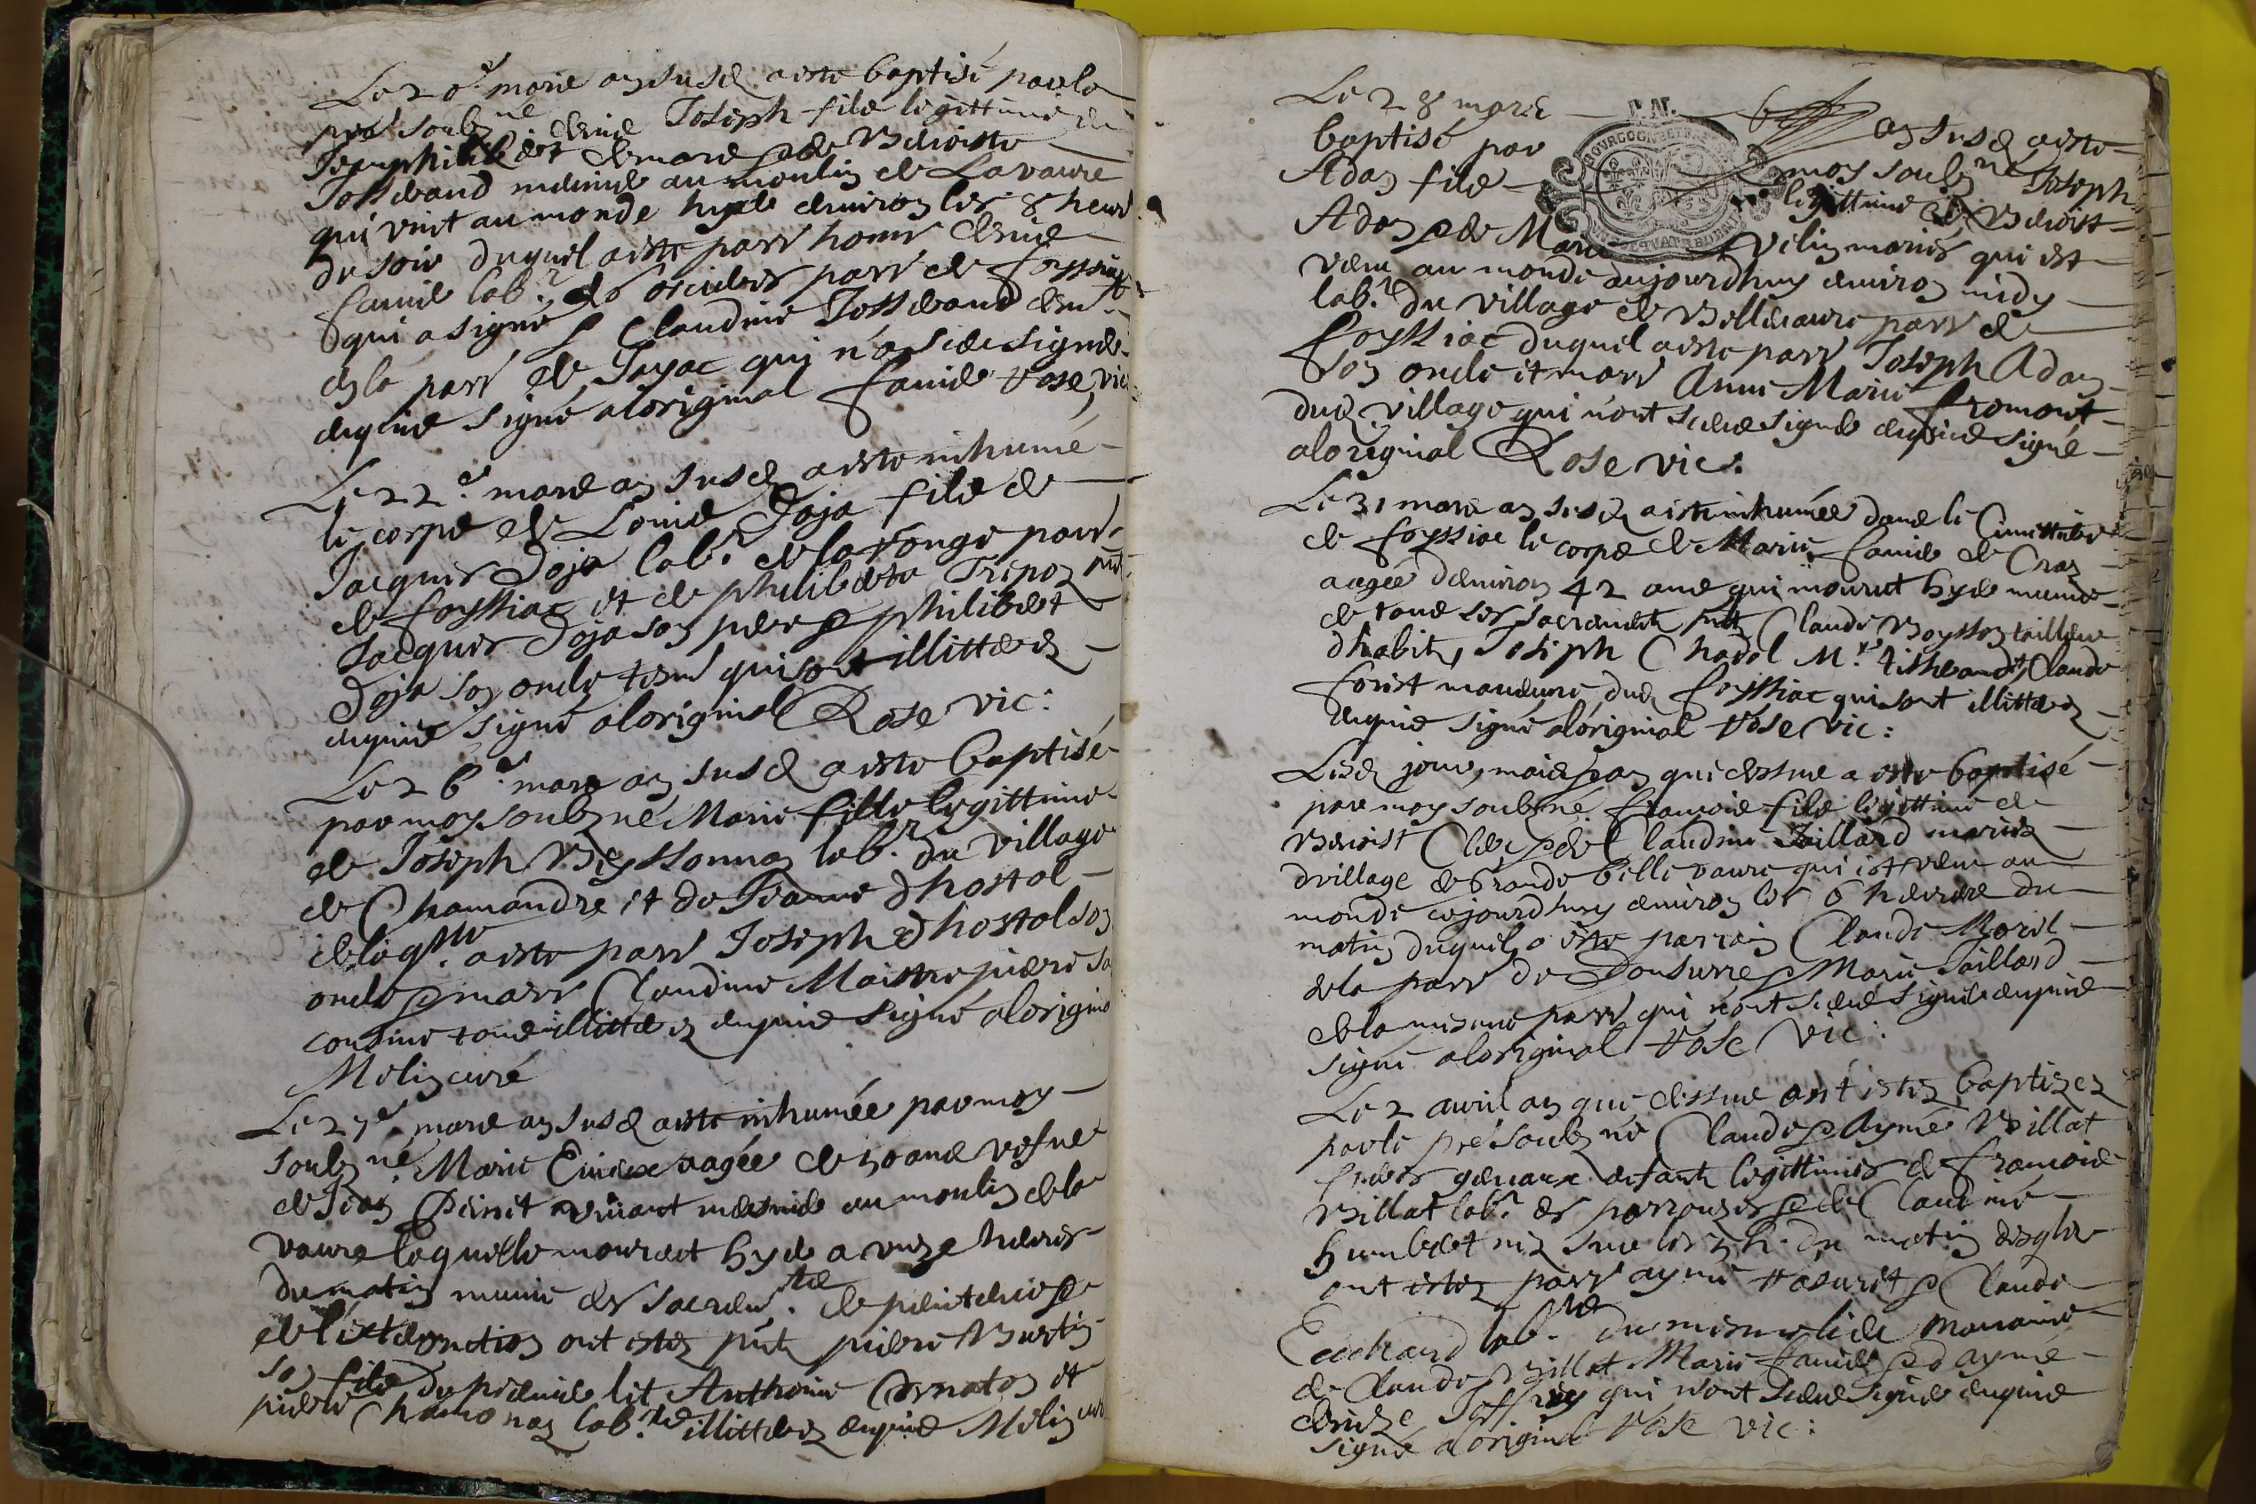 Le 20e mars an susd a este baptisé par le
pre soubzne Joseph filz legittime de
Philibert
Josserand musnier au moulin de Lavaure
qui vint au monde hyer environ les 8 heures
du soir duquel a este parr honor
lab.r parr de Foyssiat
qui a signé & Claudine Josserand
de la parr de Jayac qui n'a sceu signer
enquis signé a loriginal Rose, vic
Le 22.e mars an susd a este inhumé
le corps de Louis Doja filz de
Jacques Doja lab.r de la ronge parr
de Foyssiac et de philiberte Tripoz pnt
Jacques Doja son pere & philibert
Doja son oncle tesm qui sont illitterez
enquis signé a loriginal Rose vic:
Le 26.e mars an susd a este baptisé
par moy soubz né Marie fille legittime
de Joseph Beyssonnas lab.r du village
de Chamandre et de Jeanne Dhostal
de laqlle a este parr Joseph Dhostal son
oncle & marr Claudine Maistrepierre sa
cousine tous illitterez enquis signé a lorigina
Melin curé
Le 27.e mars an susd a este inhumée par moy
soubz né Marie aagée de 50 ans vefve
de Jean Perret vivant musnier au moulin de la
vaure laquelle mourut hyer a unze heures
du matin munie des sacrem.ts de penitence &
de l'extreonction ont estez pnts pierre Burtin
son filz du premier lit Anthoine Cornaton et
pierre Chamonaz lab.rs illitterez enquis Melin curé
Le 28 mars an susd a este
baptisé par moy soubz né Joseph
Adan filz legittime de Benoist
Adan & de Marie Velin mariés qui est
venu au monde aujourdhuy environ midy
lab.r du village de Bellevaure parr de
Foyssiac duquel a este parr Joseph Adan
son oncle et marr Anne Marie Fromont
dud village qui n'ont sceu signer enquis signé
a loriginal Rose vic:
Le 31 mars an susd a este inhumée dans le Cimettiere
de Foyssiac le corps de Marie de Cras
aagée denviron 42 ans qui mourut hyer munie
de tous les sacrements pnts Claude Boysson tailleur
dhabitz, Joseph Chadel M.e tisserand & Claude
Forest manevure dud Foyssiac qui sont illitterez
enquis signé a loriginal Rose vic:
Lesd jour, mois & an que dessus a este baptisé
par moy soubz né francois filz legittime de
Benoist Clerc & de Claudine Taillard mariez
d village de Grande belle vaure qui est venu au
monde cejourdhuy environ les 6 heures du
matin duquel a este parrain Claude Morel
de la parr de Donsurre & Marie Taillard
de la mesme parr qui n'ont sceu signer enquis
signé a loriginal Rose vic:
Le 2 avril an que dessus ont estez baptizez
par le pre soubz né Claude & Aymé Billat
freres gemeaux enfants legittimes de francois
Billat lab.r es parrouzes & de Claudine
humbert nez sur les 5 h. du matin desqls
ont estez parr aymé Rosuret & Claude
Eschard lab.rs du mesme lieu marraine
de Claude Billat Marie & d'aymé
Denize Joffrey qui n'ont sceu signer enquis
signé a loriginal Rose vic: